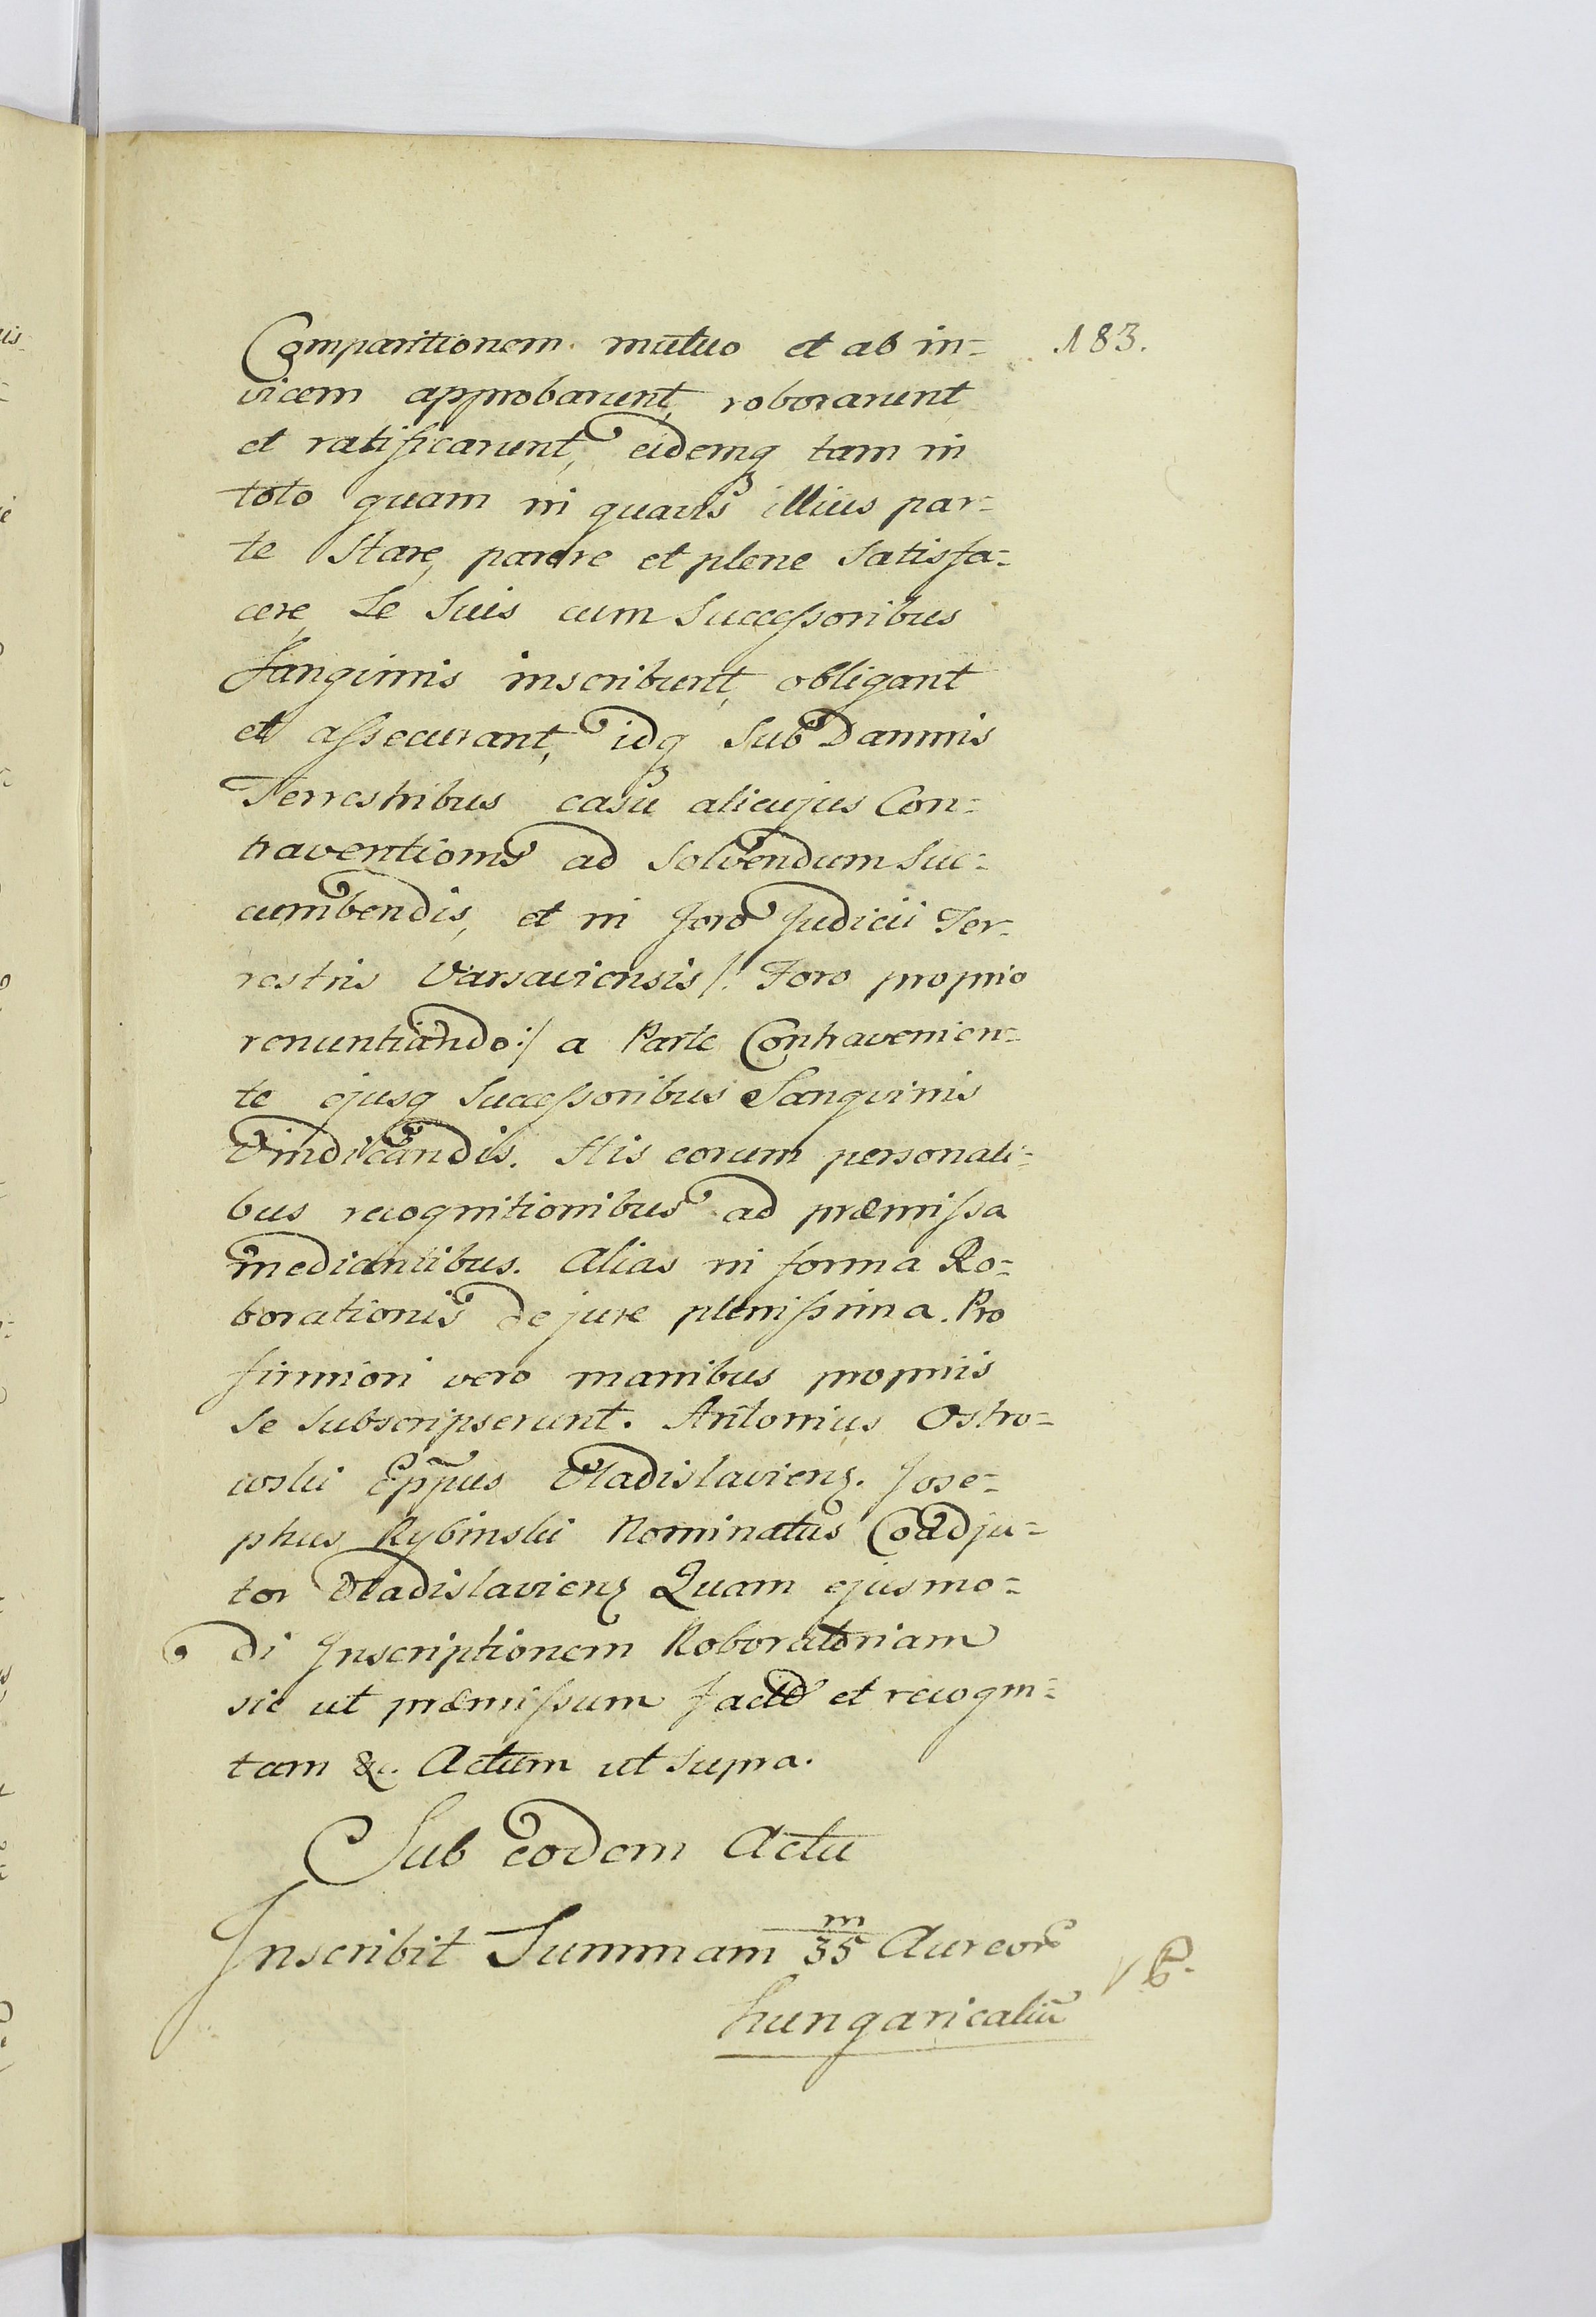 183.
Comparitionem mutuo et ab in=
vicem approbarunt, roborarunt
et ratificarunt, eidemq tam in
toto quam in quavis illius par=
te Stare, parere et plene Satisfa=
cere, Se Suis cum Successoribus
Sangvinis inscribunt, obligant
et assecurant, idq Sub Damnis
Terrestribus casu alicujus Con=
traventionis ad Solvendum Suc=
cumbendis, et in foro Judicii Ter=
restris Varsaviensis /: Foro proprio
renuntiando :/ a Parte Contravenien=
te ejusq Successoribus Sangvinis
Vindicandis. His eorum personali=
bus recognitionibus ad præmissa
mediantibus. Alias in forma Ro=
borationis de jure plenissima. Pro
firmiori vero manibus propriis
Se Subscripserunt. Antonius Ostro=
wski Eppus Vladislaviens. Jose=
phus Rybinski Nominatus Coadju=
tor Vladislaviens Quam ejusmo=
di Inscriptionem Roboratoriam
sic ut præmissum facto et recogni=
tam &c. Actum ut Supra.
Sub eodem Actu
Inscribit Summam m/35 Aureor
hungaricaliu